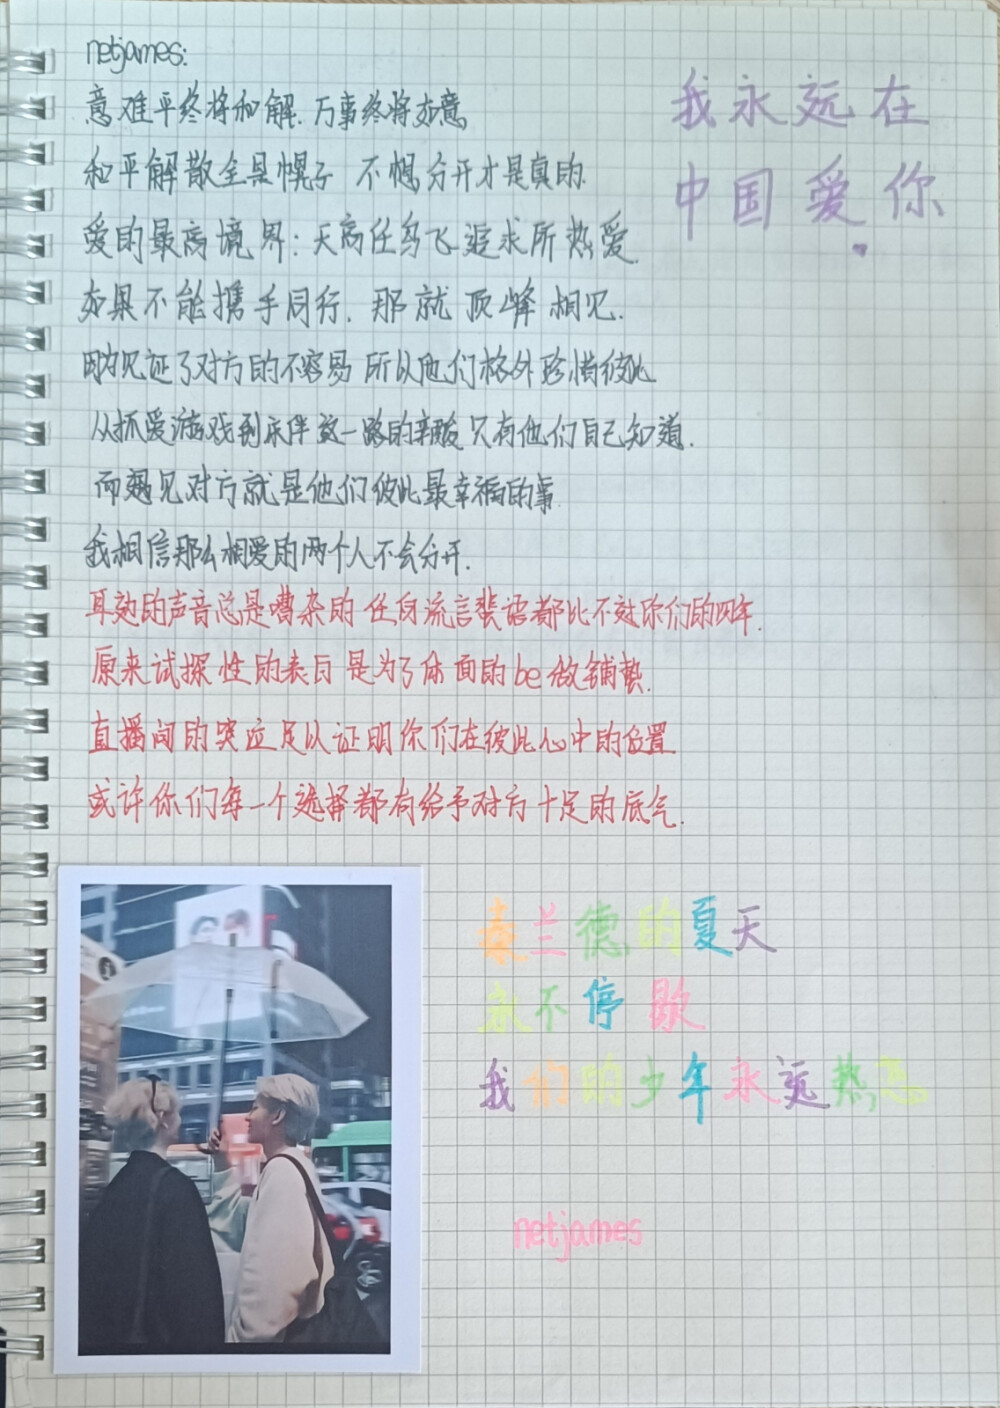 netjames:
意难平终将和解. 万事终将如意
和平解散全是幌子 不想分开才是真的.
爱的最高境界: 天高任鸟飞 追求所热爱.
如果不能携手同行. 那就顶峰相见.
因为见证了对方的不容易 所以他们格外珍惜彼此
从抓爱游戏到床伴 这一路的辛酸 只有他们自己知道.
而遇见对方就是他们彼此最幸福的事.
我相信那么相爱的两个人不会分开.
耳边的声音总是嘈杂的 任何流言蜚语都比不过你们的四年.
原来试探性的表白 是为了体面的be做铺垫.
直播间的哭泣足以证明你们在彼此心中的位置
或许你们每一个选择都有给予对方十足的底气.
我永远在
中国爱你
泰兰德的夏天
永不停歇
我们的少年永远热恋
netjames